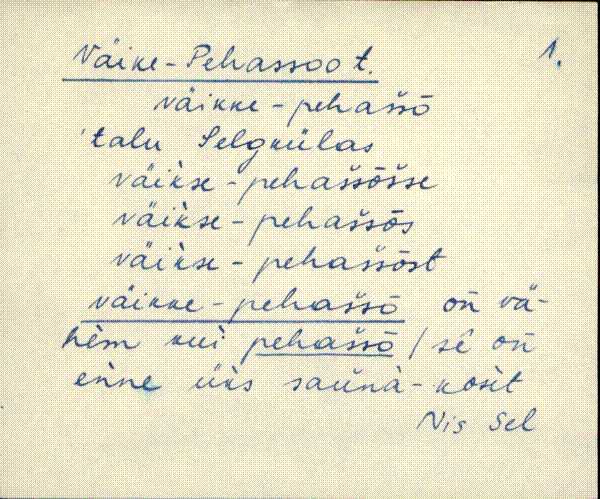 Väike-Pehassoo t. 1.
väikke-pehaššō
'talu Selgkülas
väikse-pehaššōsse
väikse-pehaššōs
väikse-pehaššōst
väikke-pehaššō on vä-
hem kui pehaššō / sē on
enne üks sauna-kosit
Nis Sel